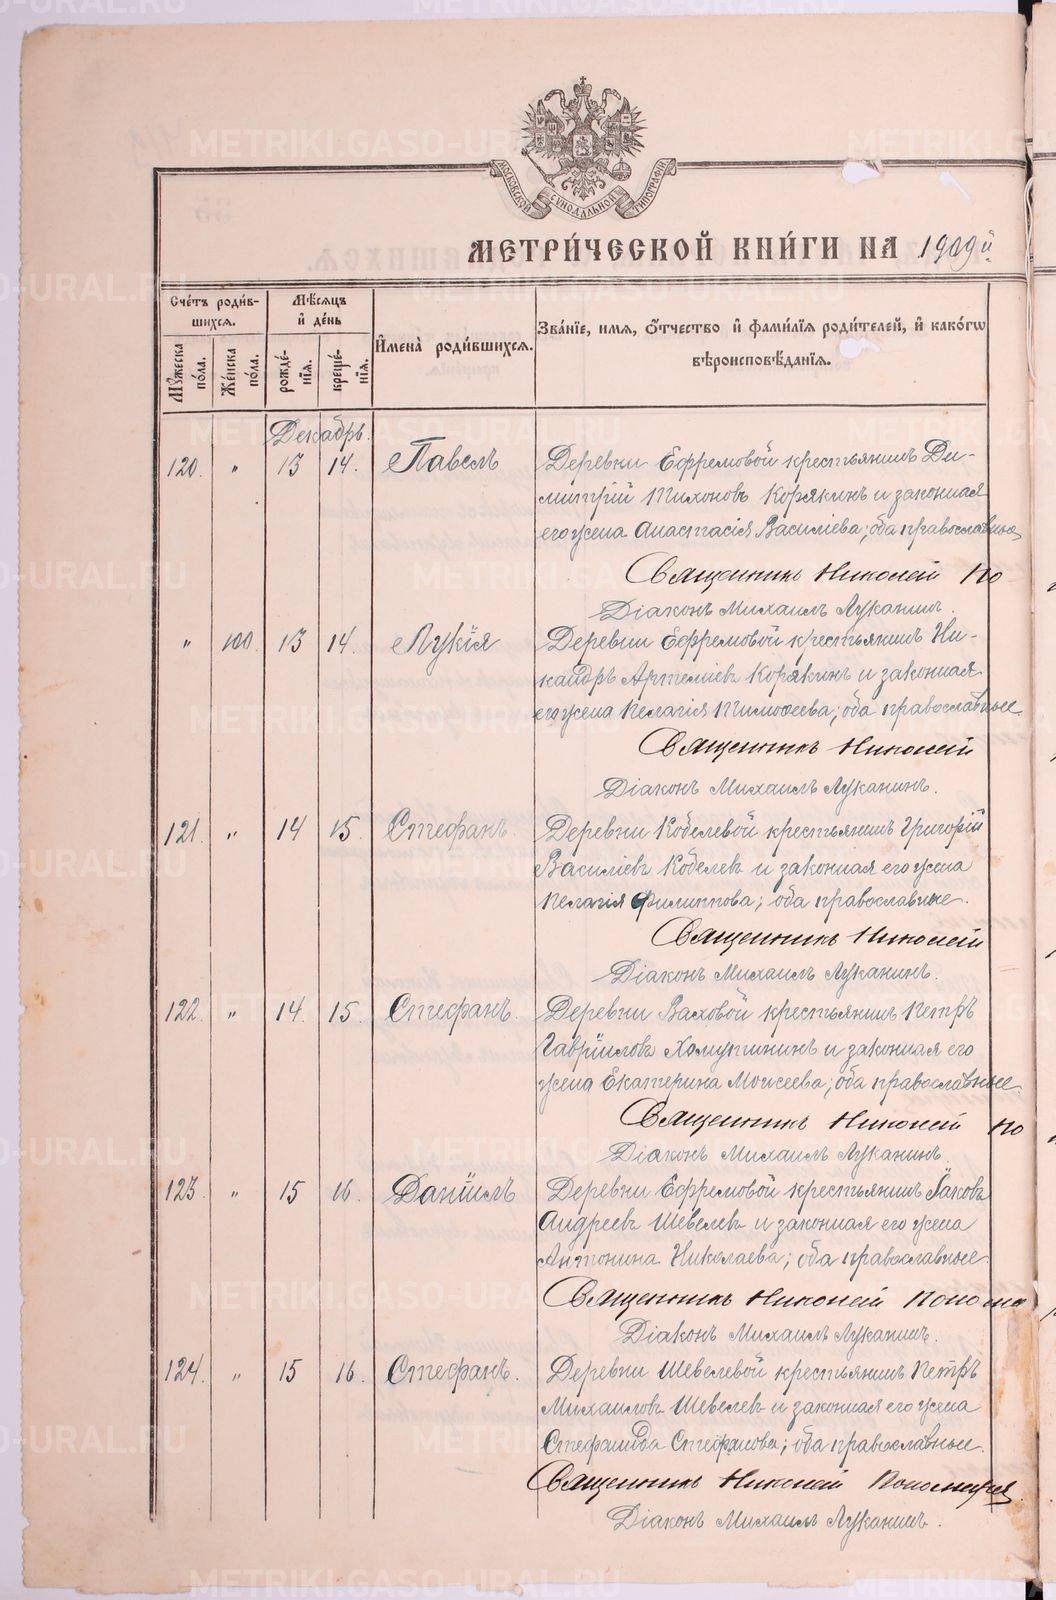 МОСКОВСКОЙ СѴНОДАЛЬНОЙ ТИПОГРАФІИ
МЕТРИ́ЧЕСКОЙ КНИ́ГИ НА 1909й
Сче́тъ роди́в-
шихся.
Мѣ́сяцъ
и҆ де́нь
И҆мена̀ роди́вшихся.
Зва́нїе, имя, о҆́тчество и҆ фами́лїя роди́телей, и҆ како́гѡ
вѣроисповѣ́данїя.
Мꙋ́жеска по́ла.
Же́нска по́ла.
рожде́-
нїя.
креще́-
нїя.
Декабрь.
120. " 13 14. Павелъ Деревни Ефремовой крестьянинъ Ди-
митрій Тихоновъ Корякинъ и законная
его жена Анастасія Василіева; оба православные
Священникъ Николай По
Діаконъ Михаилъ Луканинъ.
" 100. 13 14. Лукія Деревни Ефремовой крестьянинъ Ни-
кандръ Артеміевъ Корякинъ и законная
его жена Пелагія Тимоѳеева; оба православные
Священникъ Николай
Діаконъ Михаилъ Луканинъ.
121. " 14 15. Стефанъ. Деревни Кобелевой крестьянинъ Григорій
Василіевъ Кобелевъ и законная его жена
Пелагія Филиппова; оба православные.
Священникъ Николай
Діаконъ Михаилъ Луканинъ.
122. " 14. 15. Стефанъ. Деревни Ваховой крестьянинъ Петръ
Гавріиловъ Хомутининъ и законная его
жена Екатерина Моисеева; оба православные.
Священникъ Николай По
Діаконъ Михаилъ Луканинъ.
123. " 15 16. Даніилъ Деревни Ефремовой крестьянинъ Іаковъ
Андреевъ Шевелевъ и законная его жена
Антонина Николаева; оба православные.
Священникъ Николай Понома
Діаконъ Михаилъ Луканинъ.
124. " 15 16. Стефанъ. Деревни Шевелевой крестьянинъ Петръ
Михаиловъ Шевелевъ и законная его жена
Стефанида Стефанова; оба православные.
Священникъ Николай Пономарев
Діаконъ Михаилъ Луканинъ.
METRIKI.GASO-URAL.RU